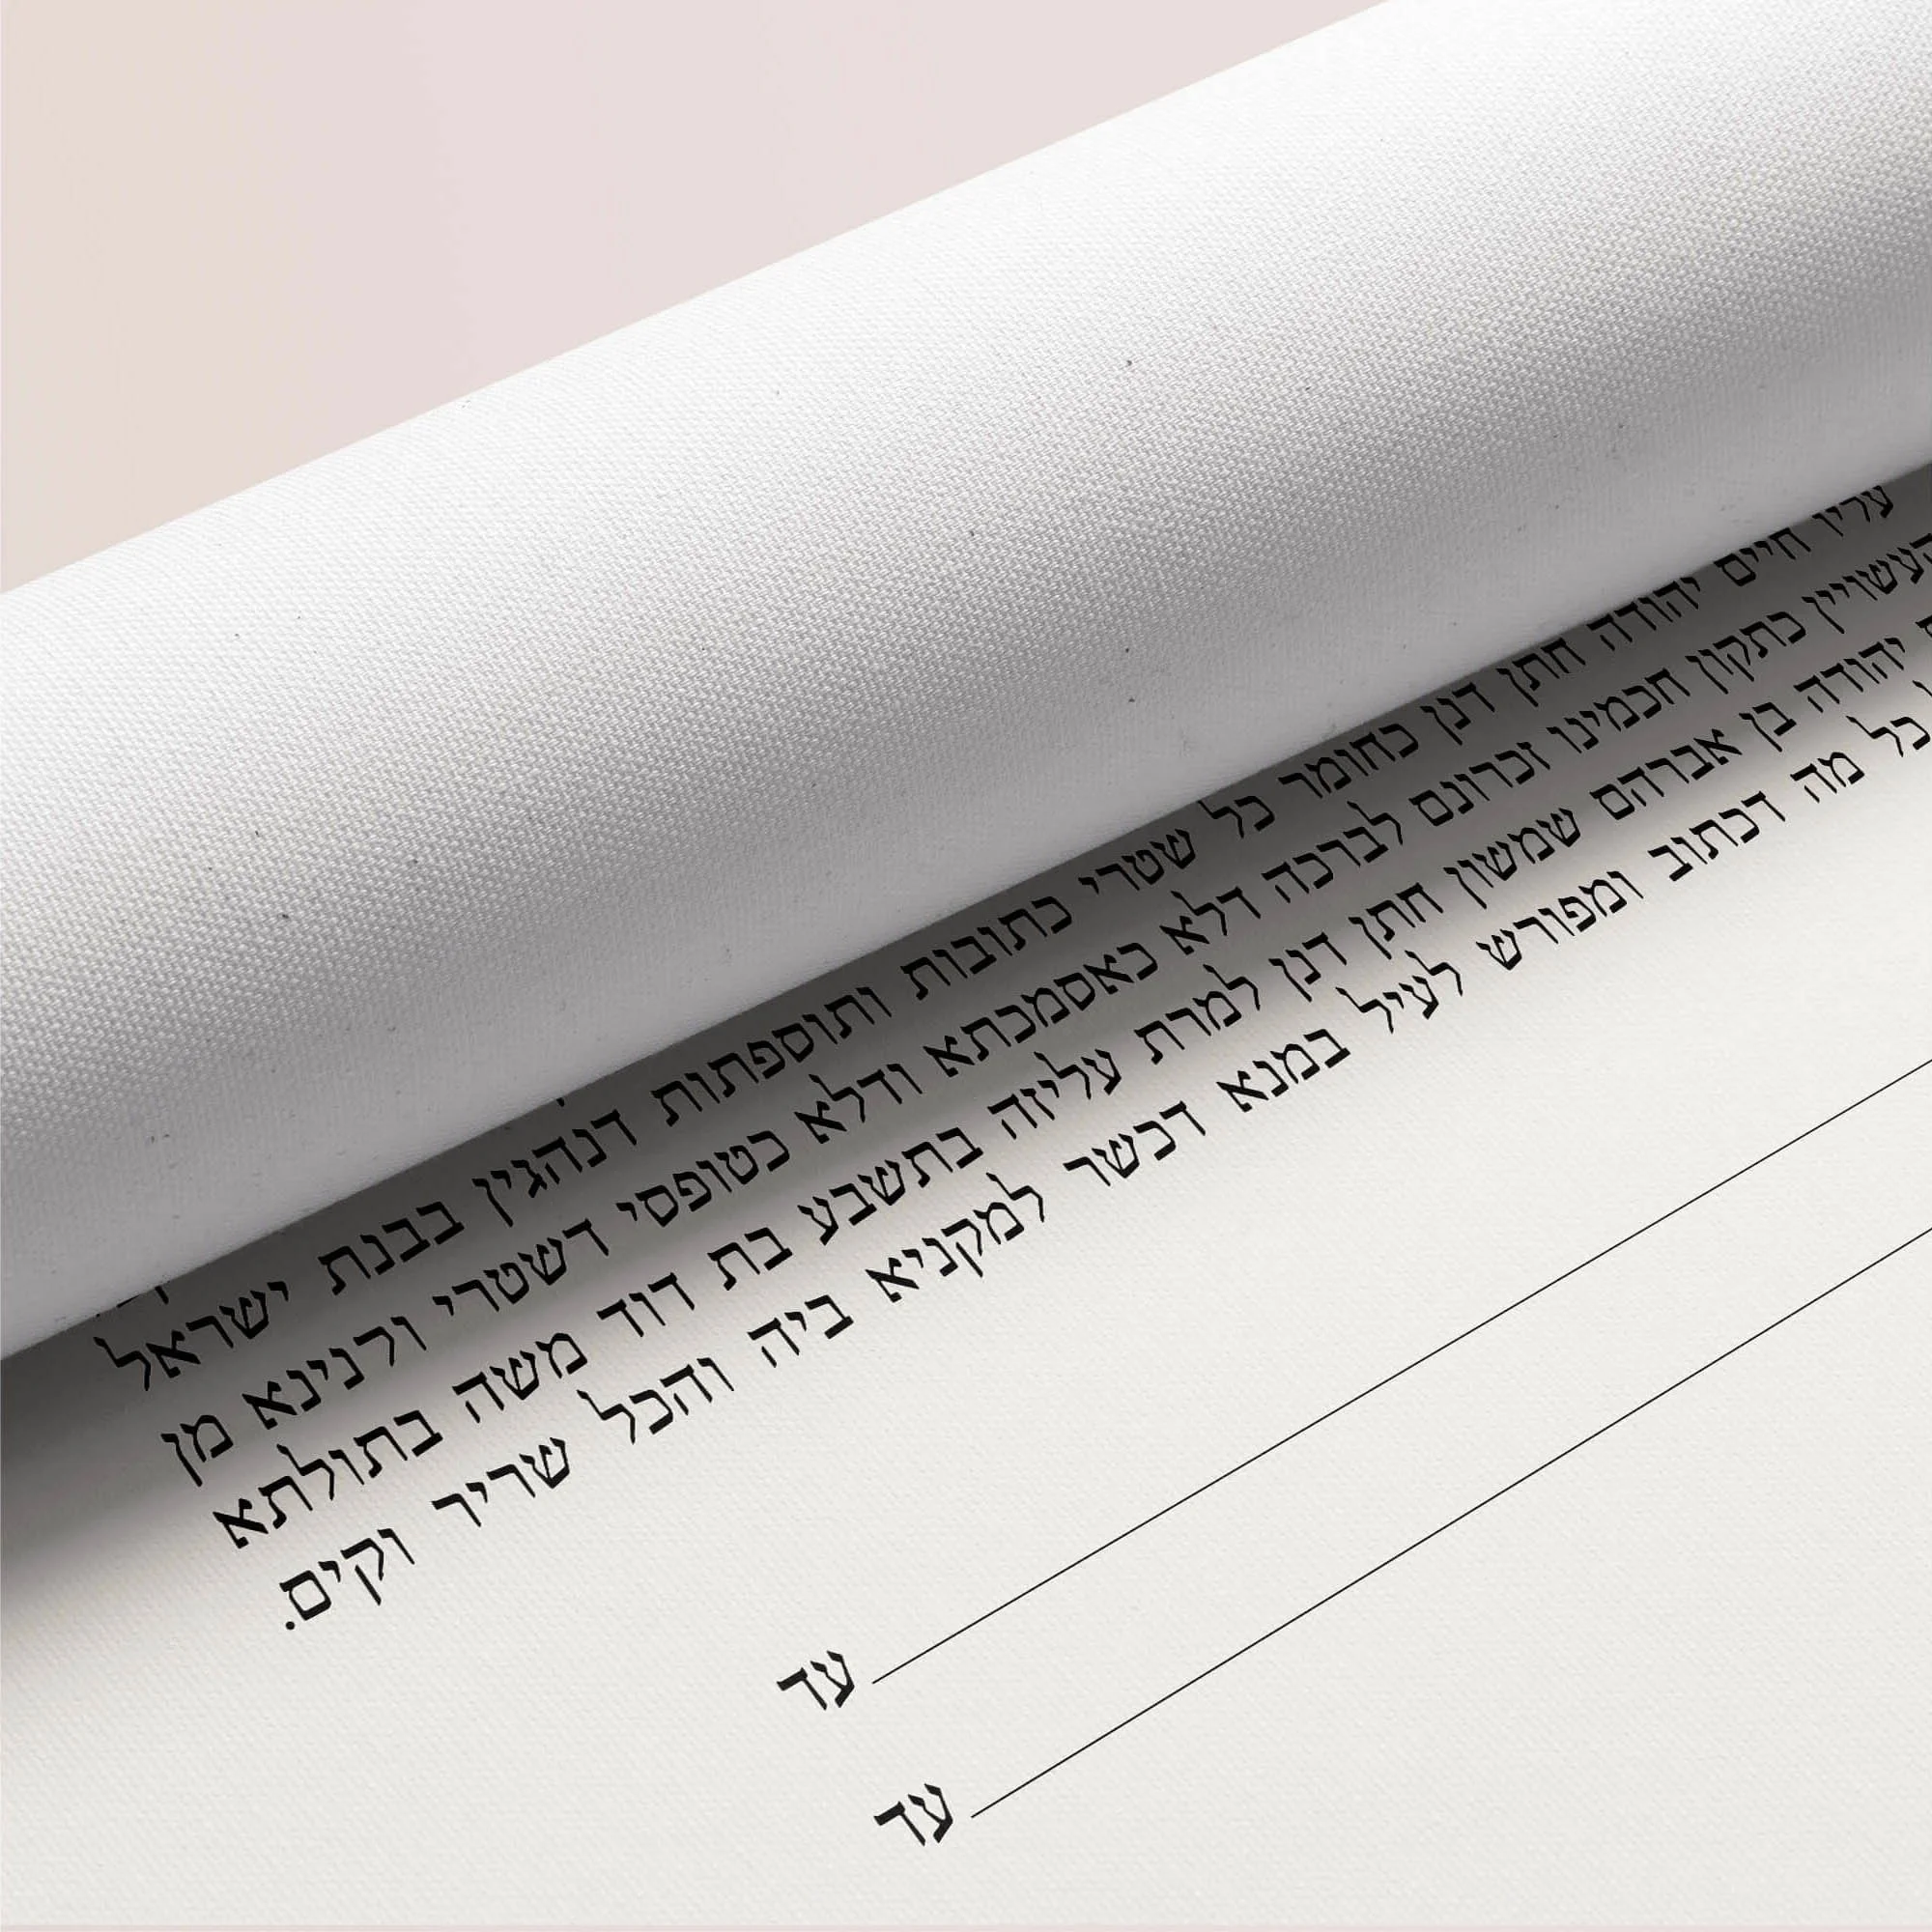 עליו חיים יהודה חתן דנן כחומר כל שטרי כתובות ותוספתות דנהגין בבנת ישראל
העשויין כתקון חכמינו זכרונם לברכה דלא כאסמכתא ודלא כטופסי דשטרי וקנינא מן
יהודה בן אברהם שמשון חתן דנן למרת עליזה בתשבע בת דוד משה בתולתא
כל מה דכתוב ומפורש לעיל במנא דכשר למקניא ביה והכל שריר וקים.
עד
עד